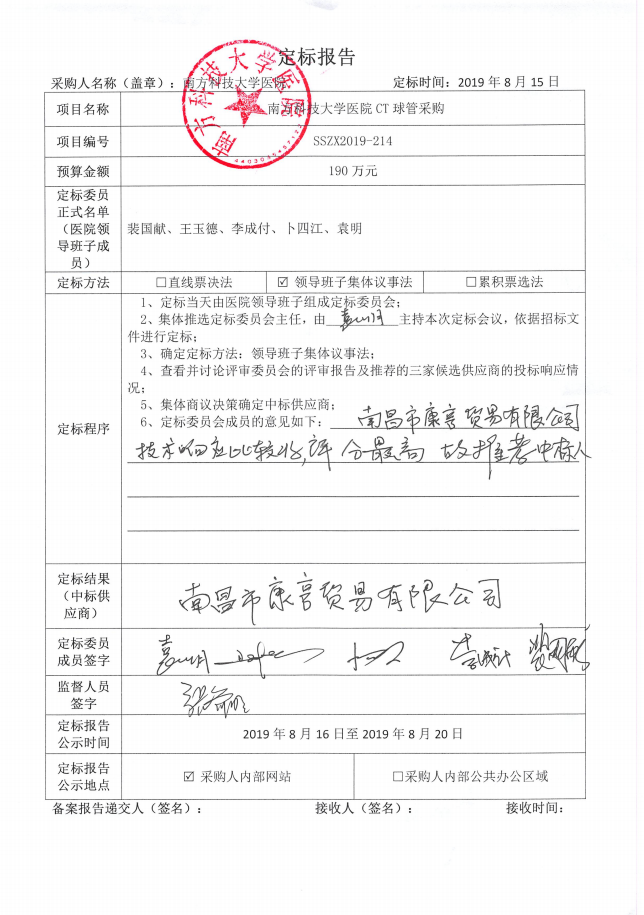 定标报告
采购人名称（盖章）：南方科技大学医院
定标时间：2019 年 8 月 15 日
南方科技大学医院
4403035407172
项目名称
南方科技大学医院 CT 球管采购
项目编号
SSZX2019-214
预算金额
190 万元
定标委员
正式名单
（医院领
导班子成
员）
裴国献、王玉德、李成付、卜四江、袁明
定标方法
☐直线票决法
☑ 领导班子集体议事法
☐累积票选法
定标程序
1、定标当天由医院领导班子组成定标委员会；
2、集体推选定标委员会主任，由 袁明 主持本次定标会议，依据招标文
件进行定标；
3、确定定标方法：领导班子集体议事法；
4、查看并讨论评审委员会的评审报告及推荐的三家候选供应商的投标响应情
况；
5、集体商议决策确定中标供应商；
6、定标委员会成员的意见如下： 南昌市康亨贸易有限公司
技术响应比较好，评分最高 故推荐中标人
定标结果
（中标供
应商）
南昌市康亨贸易有限公司
定标委员
成员签字
袁明 李成付 裴国献
监督人员
签字
定标报告
公示时间
2019 年 8 月 16 日至 2019 年 8 月 20 日
定标报告
公示地点
☑ 采购人内部网站
☐采购人内部公共办公区域
备案报告递交人（签名）：
接收人（签名）：
接收时间：